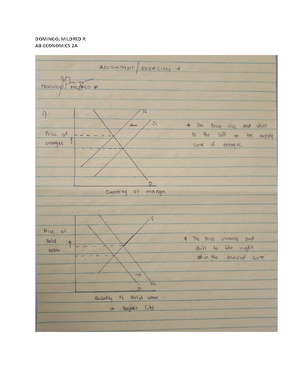 DOMINGO, MILDRED P.
AB-ECONOMICS 2A
ASSIGNMENT / EXERCISES
DOMINGO, MILDRED P.
1)
Price of
oranges
* The Price rise and shift
to the left on the supply
curve of oranges.
Quantity of oranges
Price of
hotel
rooms
S
* The Price increase and
shift to the right
in the demand curve
Quantity of hotel rooms
in Baguio City